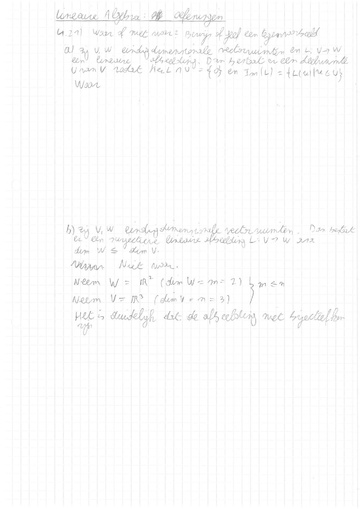 Lineaire Algebra: oefeningen
4.21) Waar of niet waar? Bewijs of geef een tegenvoorbeeld
a) Zij V, W eindigdimensionale vectorruimten en L: V → W
een lineaire afbeelding. Dan bestaat er een deelruimte
U van V zodat Ker L ∩ U = {0} en Im(L) = {L(u)|u ∈ U}
Waar
b) Zij V, W eindigdimensionale vectorruimten. Dan bestaat
er een lineaire afbeelding L: V → W
dim W ≤ dim V.
Niet waar.
Neem W = ℝ² (dim W = m = 2) } m ≤ n
Neem V = ℝ³ (dim V = n = 3)
Het is duidelijk dat de afbeelding niet bijectief kan
zijn